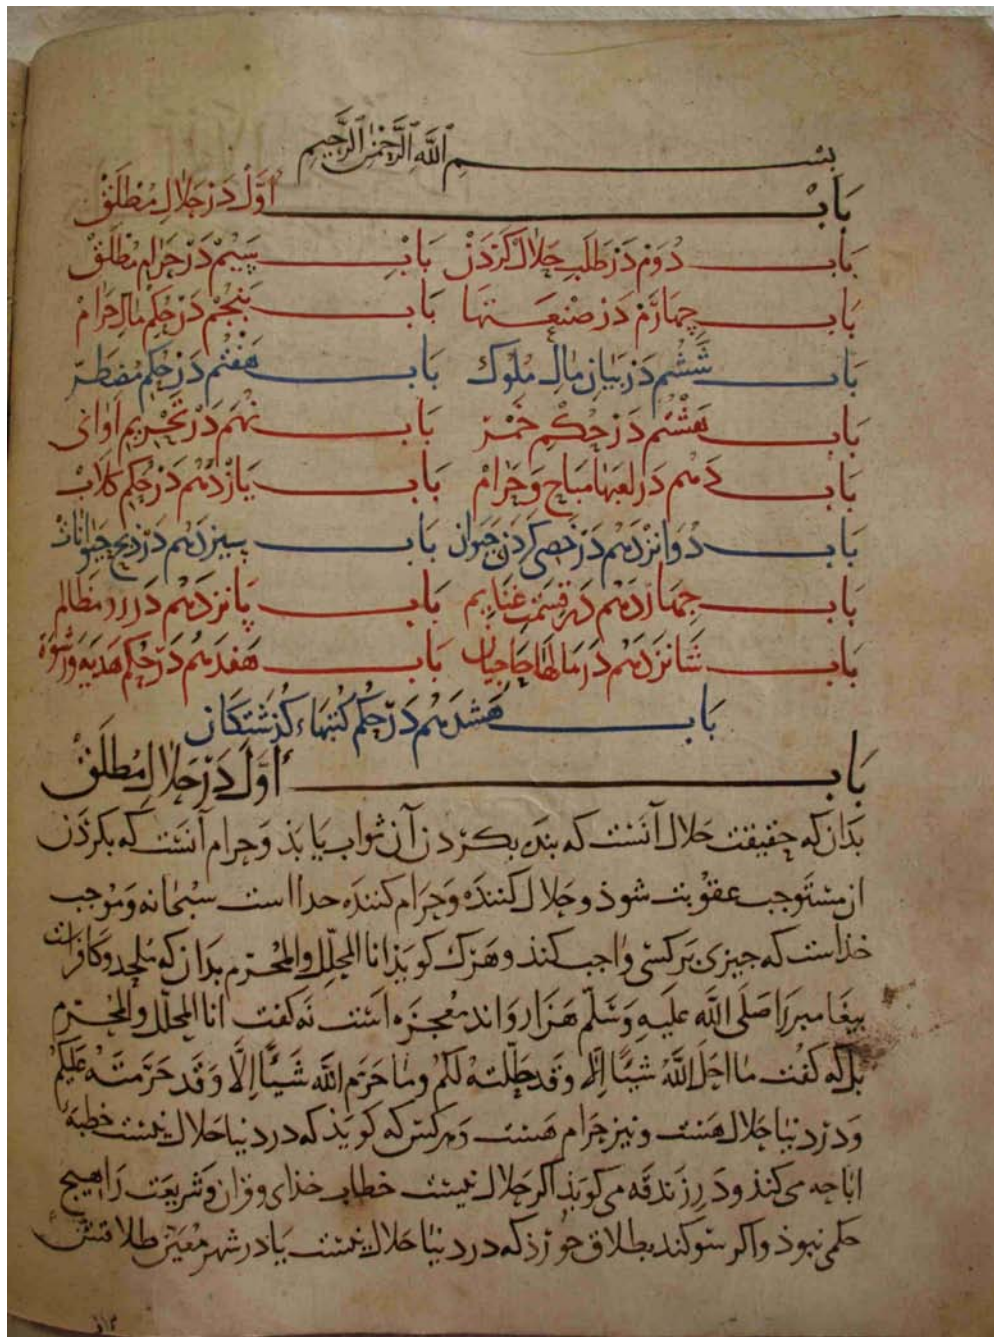 بسم الله الرحمن الرحيم
باب اول در حلال مطلق
باب دوم در طلب حلال کردن باب سیم در حرام مطلق
باب چهارم در صنعتها باب پنجم در حکم مال حرام
باب ششم در بیان مال ملوک باب هفتم در حکم مضطر
باب هشتم در حکم خمر باب نهم در تحریم اوانی
باب دهم در لعبها مباح و حرام باب یازدهم در حکم کلاب
باب دوانزدهم در خصی کردن حیوان باب سیزدهم در ذبح حیوانات
باب چهاردهم در قسمت غنایم باب پانزدهم در رد مظالم
باب شانزدهم در مالها حاجیان باب هفدهم در حکم هدیه و رشوة
باب هشدهم در حکم کتبهاء کذشتکان
باب اول در حلال مطلق
بدان که حقیقت حلال آنست که بنده بکردن آن ثواب یابذ و حرام آنست که بکردن
ان مستوجب عقوبت شوذ و حلال کننده و حرام کننده خدا است سبحانه و موجب
خداست که چیزی بر کسی واجب کند و هرک کویذ انا المحلل والمحرم بدان که ملحد و کافرست
پیغامبر را صلی الله علیه وسلم هزار و اند معجزه است نه کفت انا المحلل والمحرم
بل که کفت ما احل الله شیئا الا وقد حللته لکم وما حرم الله شیئا الا وقد حرمته علیکم
و در دنیا حلال هست و نیز حرام هست و هر کس که کویذ که در دنیا حلال نیست خطبه
اباحه می کنذ و در زندقه می کوبذ اکر حلال نیست خطاب خذای و قران و شریعت را هیچ
حکمی نبوذ و اکر سوکند بطلاق خورذ که در دنیا حلال نیست یا در شهر معین طلاقش